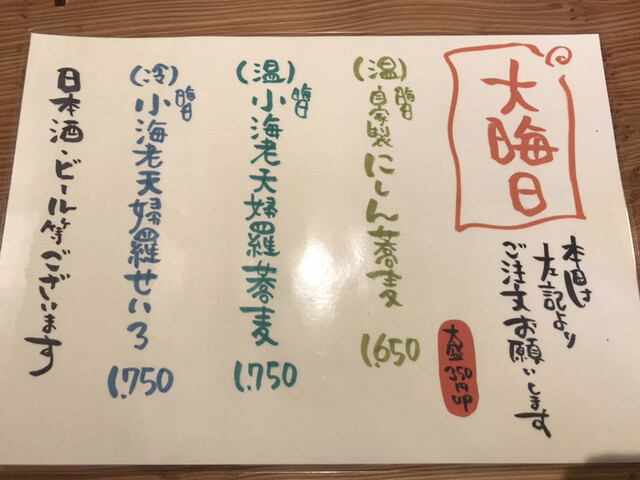 大晦日
本日は
左記より
ご注文お願いします
大盛
350
円
UP
(温)晦日自家製にしん蕎麦
1,650
(温)晦日小海老天婦羅蕎麦
1,750
(冷)晦日小海老天婦羅せいろ
1,750
日本酒・ビール等ございます